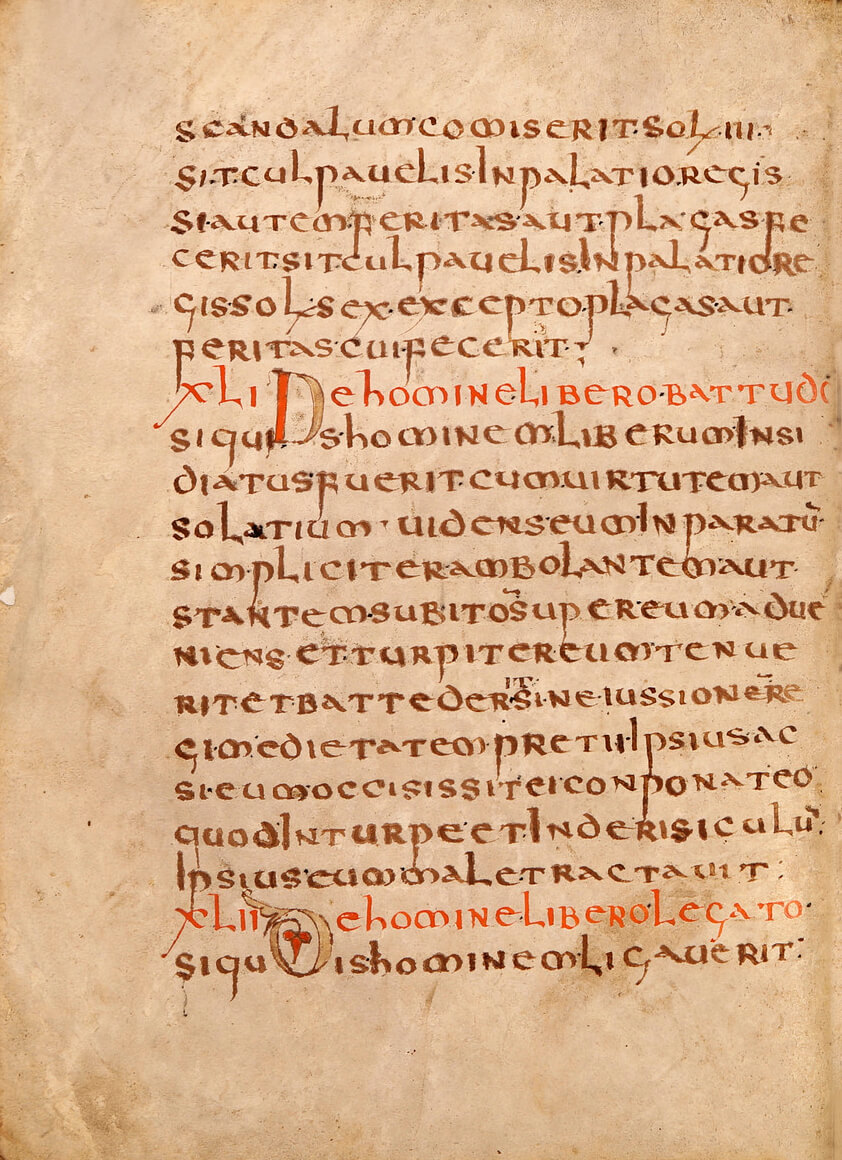 scandalum·comiserit·sol·iii·
si·t·culpauelis·Inpalatio·regis
si·autem·feritas·aut·plagas·fe
cerit·sit·culpauelis·Inpalatiore
gis·sol·sex·exceptoplagas·aut·
feritas·cui·fecerit·;
XLI Dehominelibero·battudo
siquis·hominem·liberumInsi
diatusfuerit·cumuirtutemaut
solatium·uidens·eumInparatū·
simpliciterambolantemaut·
stantem·subito super·eumadue
niens·etturpitereumtenue
ritetbattederit·sine·iussionēre
gimedietatem·pretiiIpsius·ac
si·eumoccisissit·ei·conponateo
quodInturpe·etInderisiculū·
Ipsius·eummaletractauit:
XLII Dehomineliberolegato·
siquishominem·ligauerit: